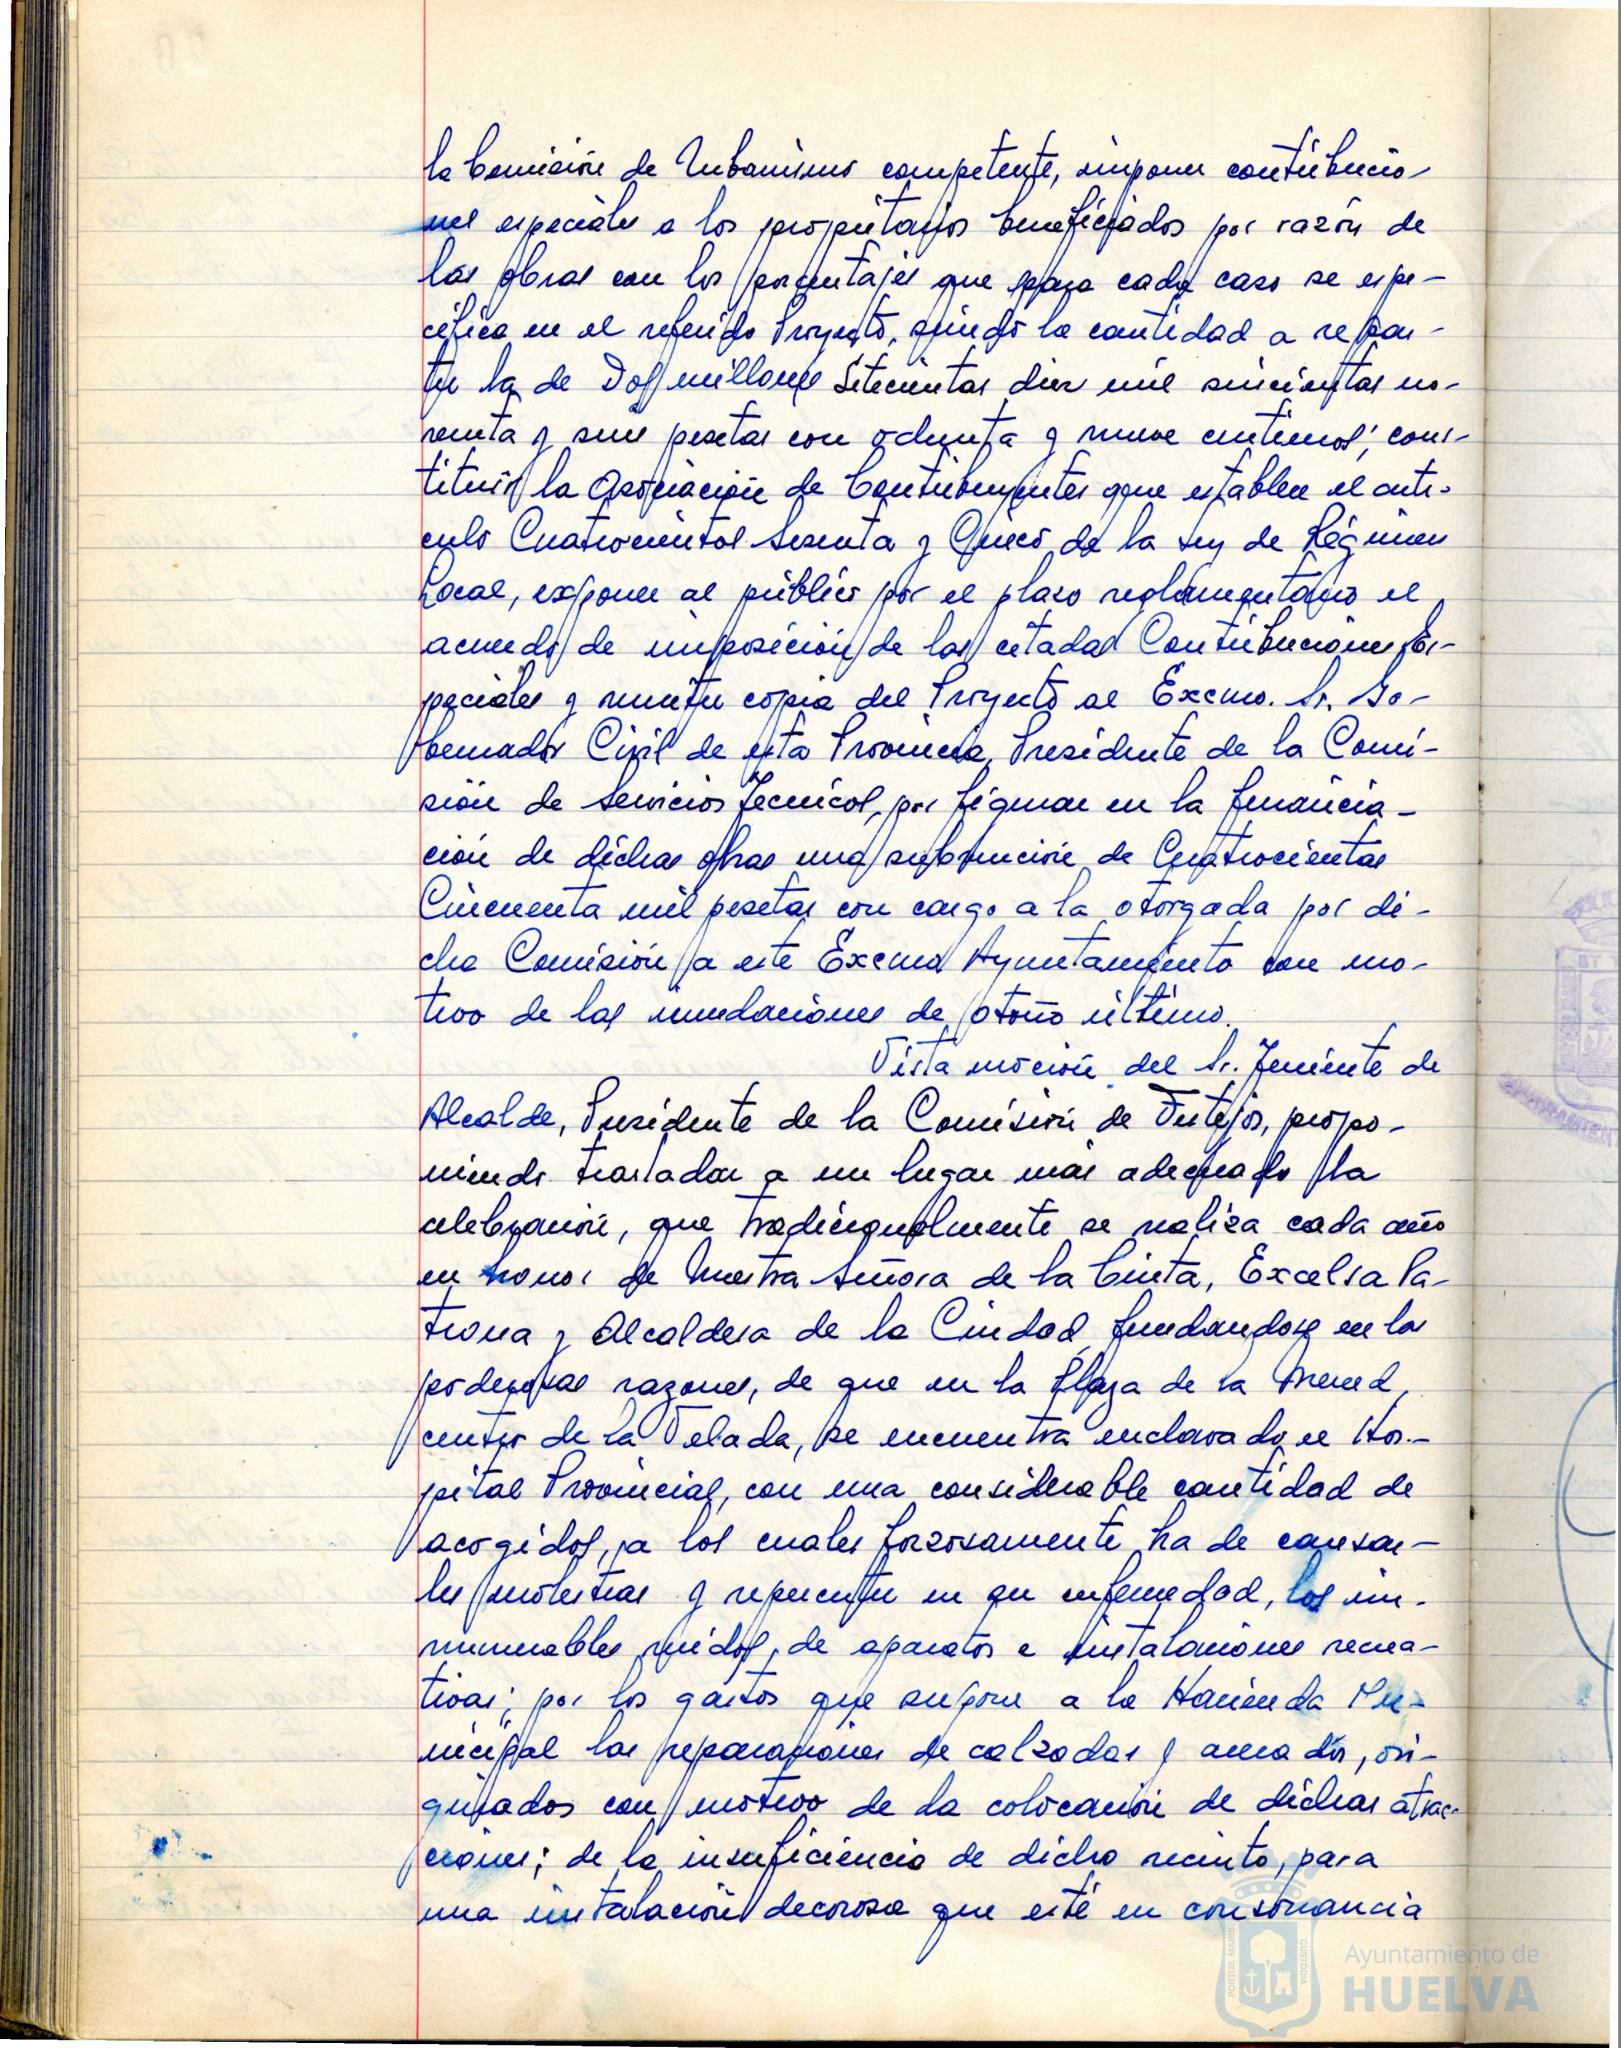 la Comisión de Urbanismo competente, imponer contribucio-
nes especiales a los propietarios beneficiados por razón de
las obras con los porcentajes que para cada caso se espe-
cífica en el referido Proyecto, siendo la cantidad a repar-
tir la de Dos millones Setecientas diez mil seiscientas no-
venta y seis pesetas con ochenta y nueve centimos; cons-
tituir la Asociación de Contribuyentes que establece el artí-
culo Cuatrocientos Sesenta y Cinco de la Ley de Régimen
Local, exponer al público por el plazo reglamentario el
acuerdo de imposición de las citadas Contribuciones Es-
peciales y remitir copia del Proyecto al Excmo. Sr. Go-
bernador Civil de esta Provincia, Presidente de la Comi-
sión de Servicios Tecnicos, por figurar en la financia-
ción de dichas obras una subvención de Cuatrocientas
Cincuenta mil pesetas con cargo a la otorgada por di-
cha Comisión a este Excmo Ayuntamiento con mo-
tivo de las inundaciones de otoño último.
Vista moción del Sr. Teniente de
Alcalde, Presidente de la Comisión de Festejos, propo-
niendo trasladar a un lugar más adecuado la
celebración, que tradicionalmente se realiza cada año
en honor de Nuestra Señora de la Cinta, Excelsa Pa-
trona y Alcaldesa de la Ciudad, fundandose en las
poderosas razones, de que en la Plaza de la Merced,
centro de la Velada, se encuentra enclavado el Hos-
pital Provincial, con una considerable cantidad de
acogidos, a los cuales forzosamente ha de causar-
les molestias y repercutir en su enfermedad, los in-
numerables ruidos, de aparatos e instalaciones recrea-
tivas; por los gastos que supone a la Hacienda Mu-
nicipal las reparaciones de calzadas y acerados, ori-
ginados con motivo de la colocación de dichas atrac-
ciones; de la insuficiencia de dicho recinto, para
una instalación decorosa que esté en consonancia
PORTUS MARIS
CUSTODIA
Ayuntamiento de
HUELVA